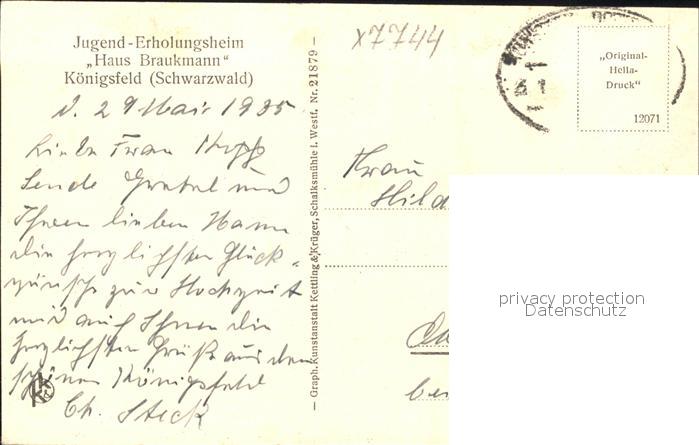 Jugend-Erholungsheim
„Haus Braukmann"
Königsfeld (Schwarzwald)
d. 29 Mai 1935
Liebe Frau
Sende und
Ihnen lieben
die herzlichsten Glück-
wünsche zur Hochzeit
und auch Ihnen die
herzlichsten Grüße aus dem
schönen Königsfeld
Ch. Steck
— Graph. Kunstanstalt Kettling & Krüger, Schalksmühle i. Westf. Nr. 21879 —
x7744
„Original-
Hella-
Druck"
12071
Frau
Hild
be
privacy protection
Datenschutz